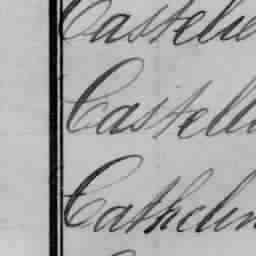 Castelie
Castella
Cathelin